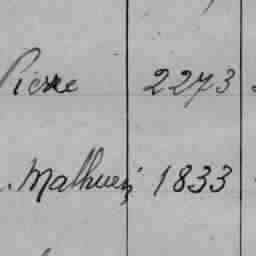 Pierre 2273
Mathurin 1833